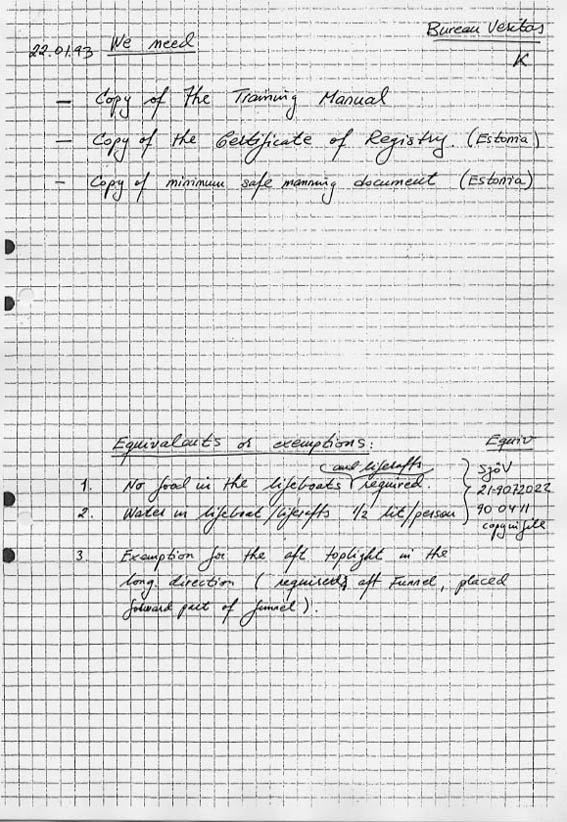 Bureau Veritas
22.01.93 We need
K
— Copy of the Training Manual
— Copy of the Certificate of Registry. (Estonia)
— Copy of minimum safe manning document (Estonia)
Equivalents or exemptions:
Equiv
and liferafts
1. No food in the lifeboats required.
SjöV
21-9072022
2. Water in lifeboat/liferafts 1/2 lit/person
90 04 11
copy in file
3. Exemption for the aft toplight in the
long. direction (required aft Funnel, placed
forward part of funnel).